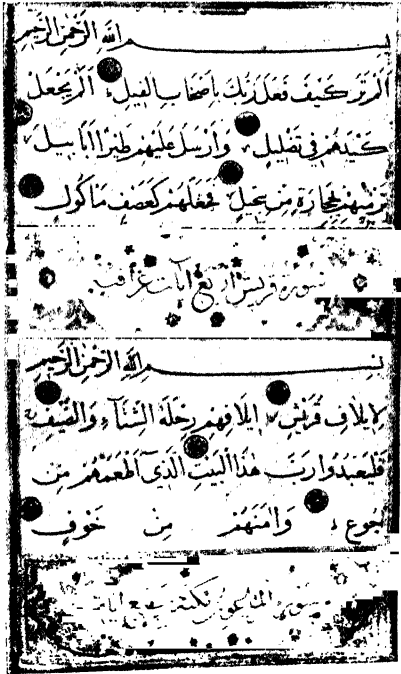 بِسْمِ اللَّهِ الرَّحْمٰنِ الرَّحِيمِ
اَلَمْ تَرَ كَيْفَ فَعَلَ رَبُّكَ بِاَصْحَابِ الْفِيلِ اَلَمْ يَجْعَلْ
كَيْدَهُمْ فِي تَضْلِيلٍ وَاَرْسَلَ عَلَيْهِمْ طَيْرًا اَبَابِيلَ
تَرْمِيهِمْ بِحِجَارَةٍ مِنْ سِجِّيلٍ فَجَعَلَهُمْ كَعَصْفٍ مَاْكُولٍ
سورة قريش اربع آيات
بِسْمِ اللَّهِ الرَّحْمٰنِ الرَّحِيمِ
لِاِيلَافِ قُرَيْشٍ اِيلَافِهِمْ رِحْلَةَ الشِّتَآءِ وَالصَّيْفِ
فَلْيَعْبُدُوا رَبَّ هٰذَا الْبَيْتِ الَّذِي اَطْعَمَهُمْ مِنْ
جُوعٍ وَاٰمَنَهُمْ مِنْ خَوْفٍ
سورة آيات